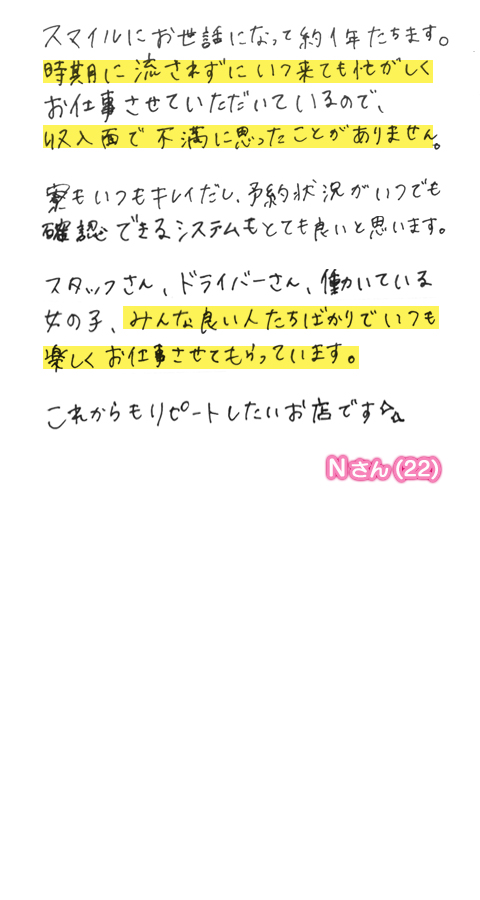 スマイルにお世話になって約1年たちます。
時期に流されずにいつ来ても忙がしく
お仕事させていただいているので、
収入面で不満に思ったことがありません。
寮もいつもキレイだし、予約状況がいつでも
確認できるシステムもとても良いと思います。
スタッフさん、ドライバーさん、働いている
女の子、みんな良い人たちばかりでいつも
楽しくお仕事させてもらっています。
これからもリピートしたいお店です☆
Nさん(22)